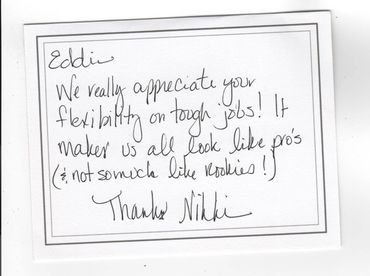 Eddie
We really appreciate your
flexibility on tough jobs! It
makes us all look like pro's
(& not so much like Rookies!)
Thanks Nikki